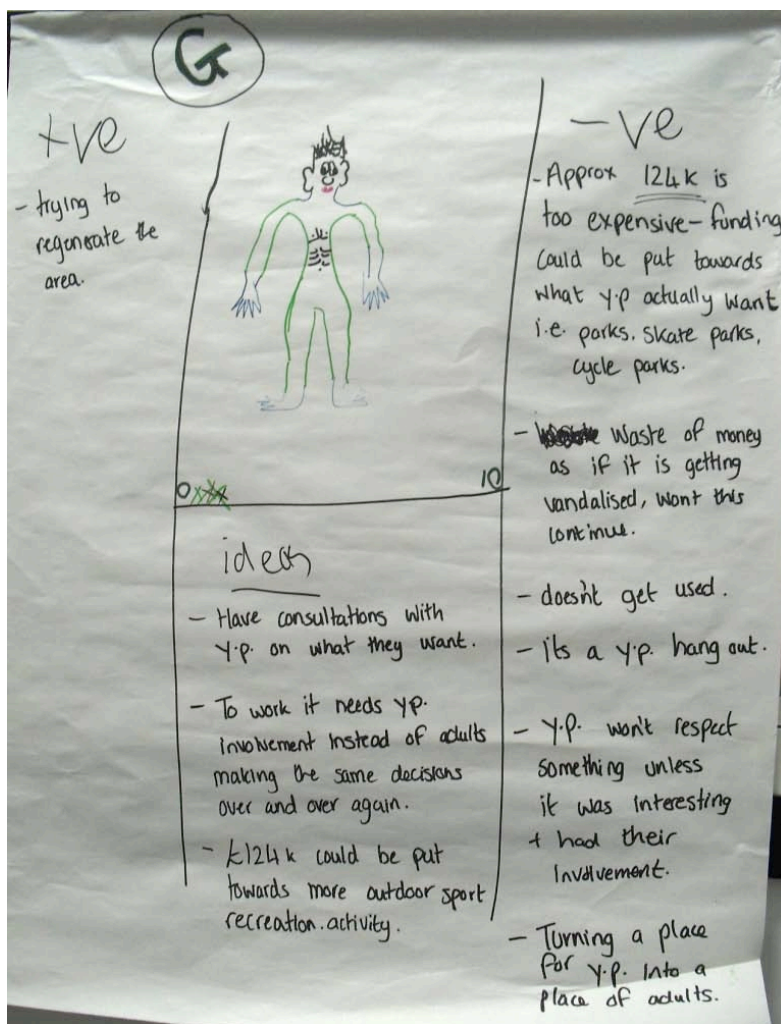 G
+ve
- trying to
regenerate the
area.
0 xxx
10
ideas
- Have consultations with
y.p. on what they want.
- To work it needs yp.
involvement instead of adults
making the same decisions
over and over again.
- £124k could be put
towards more outdoor sport
recreation.activity.
-ve
- Approx 124k is
too expensive - funding
could be put towards
what y.p actually want
i.e. parks, skate parks,
cycle parks.
- Waste of money
as if it is getting
vandalised, wont this
continue.
- doesn't get used.
- its a y.p. hang out.
- Y.P. won't respect
something unless
it was interesting
+ had their
involvement.
- Turning a place
for y.p. into a
place of adults.